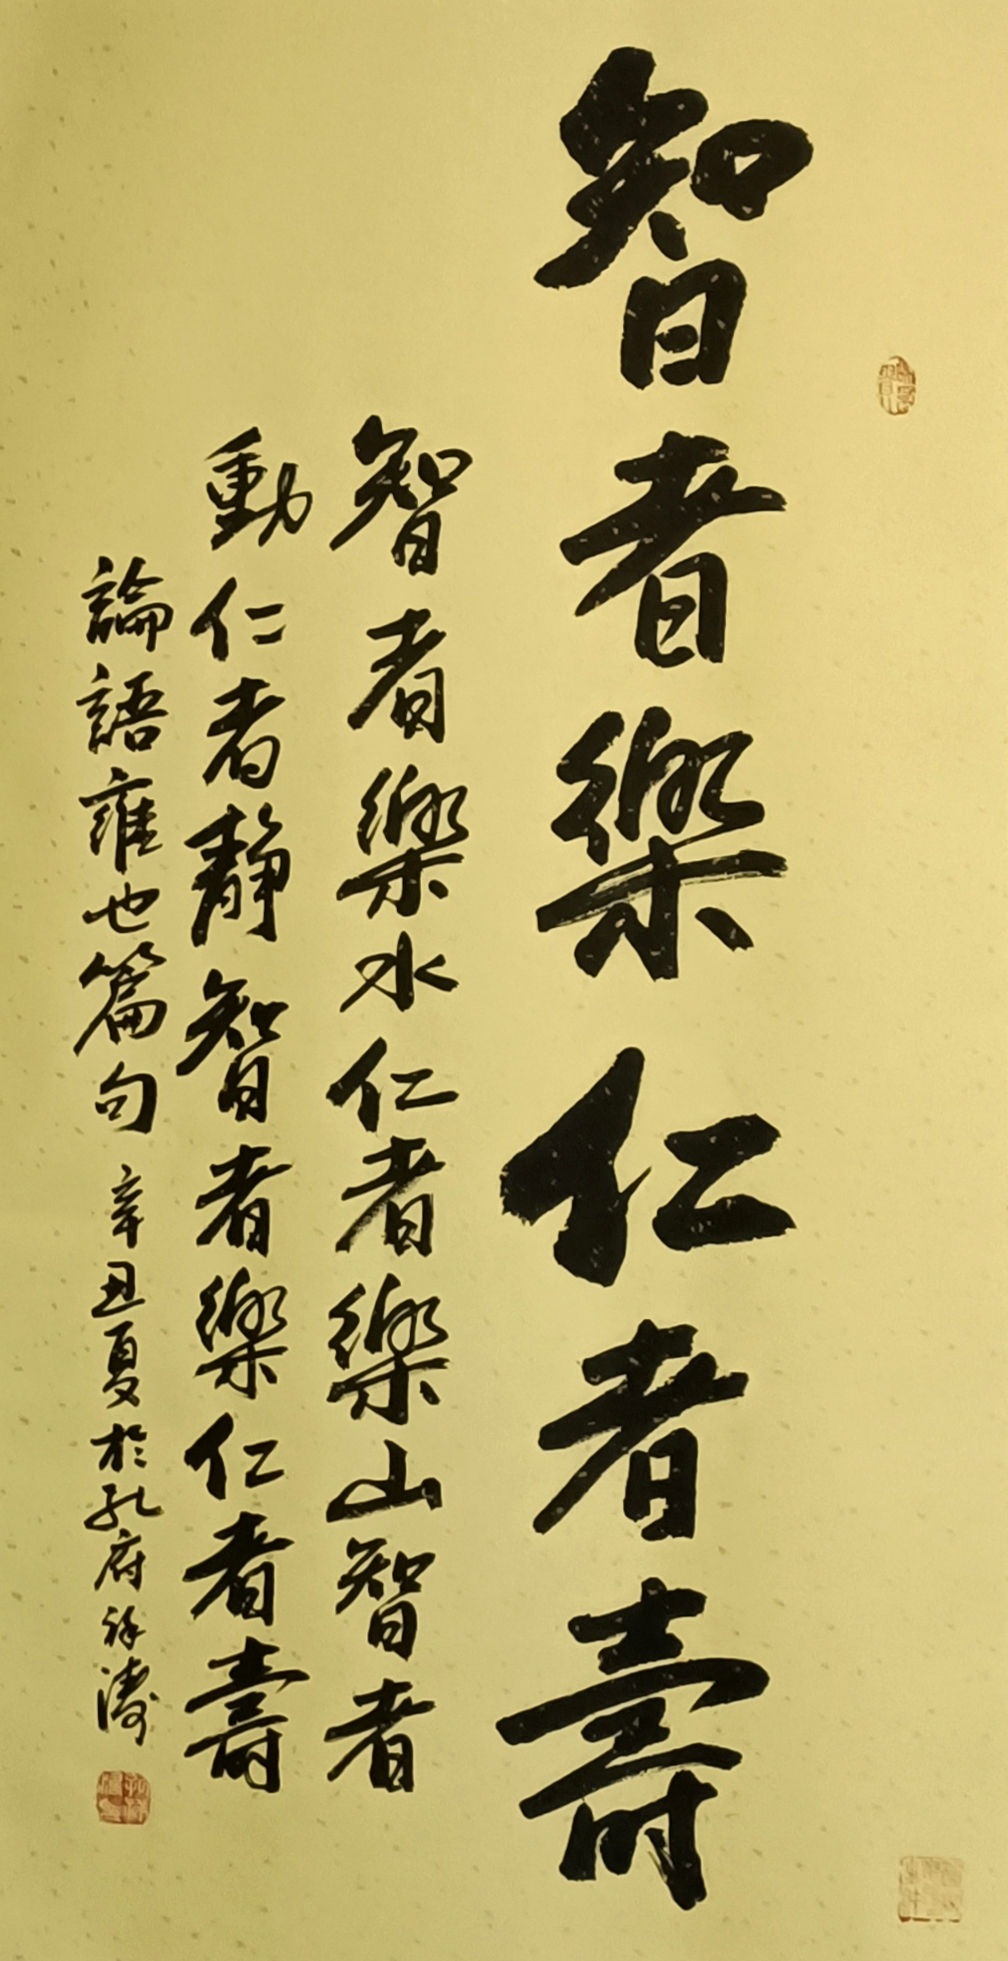 智者樂仁者壽
智者樂水仁者樂山智者
動仁者靜智者樂仁者壽
論語雍也篇句 辛丑夏於孔府祥濤